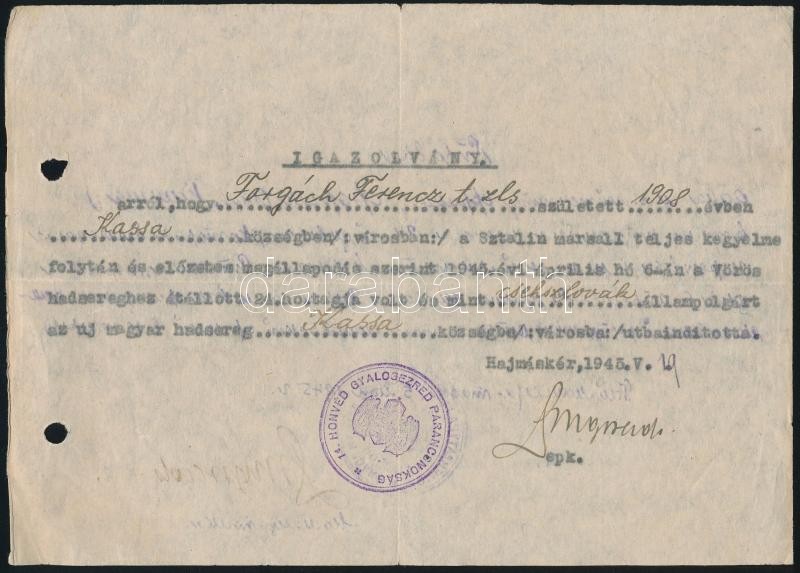 IGAZOLVÁNY.
arról,hogy Forgách Ferencz t. zls született 1908 évben
Kassa községben/:városban:/ a Sztalin marsall teljes kegyelme
folytán és előzetes megállapodás szerint 1945.évi április hó 6-án a Vörös
hadsereghez átállott 24.ho.tagja volt és mint csehszlovák állampolgárt
az uj magyar hadsereg Kassa községbe/:városba:/utbainditotta.
Hajmáskér,1945.V. 19
epk.
14. HONVÉD GYALOGEZRED PARANCSNOKSÁG
darabanth